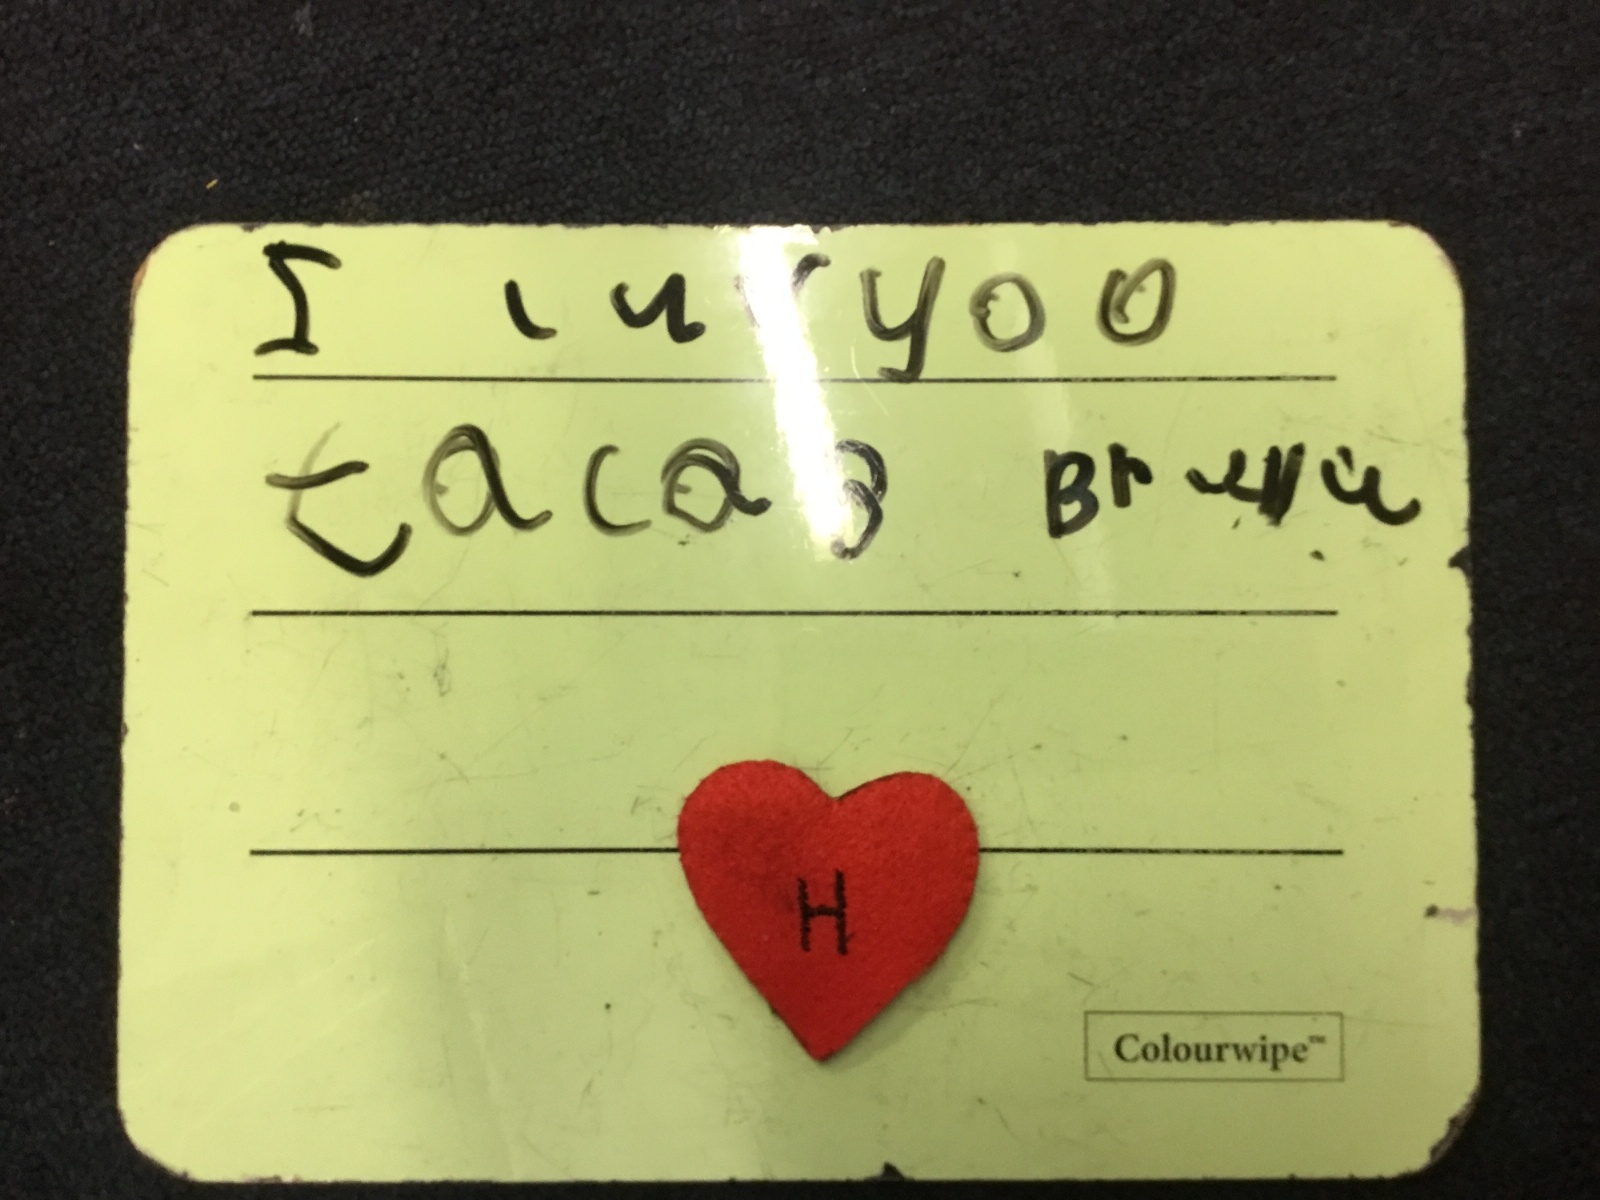 I lur yoo
tacas
H
Colourwipe™